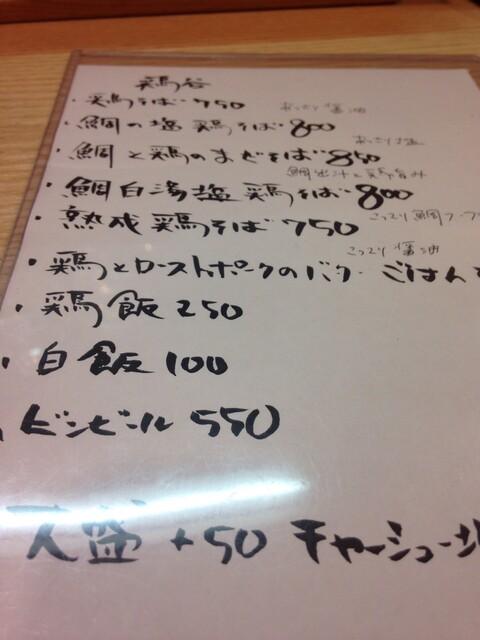 鶏谷
・鶏そば 750
あっさり醤油
・鯛の塩鶏そば 800
あっさり塩
・鯛と鶏のまぜそば 850
鯛出汁と鶏旨み
・鯛白湯塩鶏そば 800
こってり鯛
・熟成鶏そば 750
こってり醤油
・鶏とローストポークのバター ごはん
・鶏飯 250
・白飯 100
・ビンビール 550
大盛 +50 チャーシュー